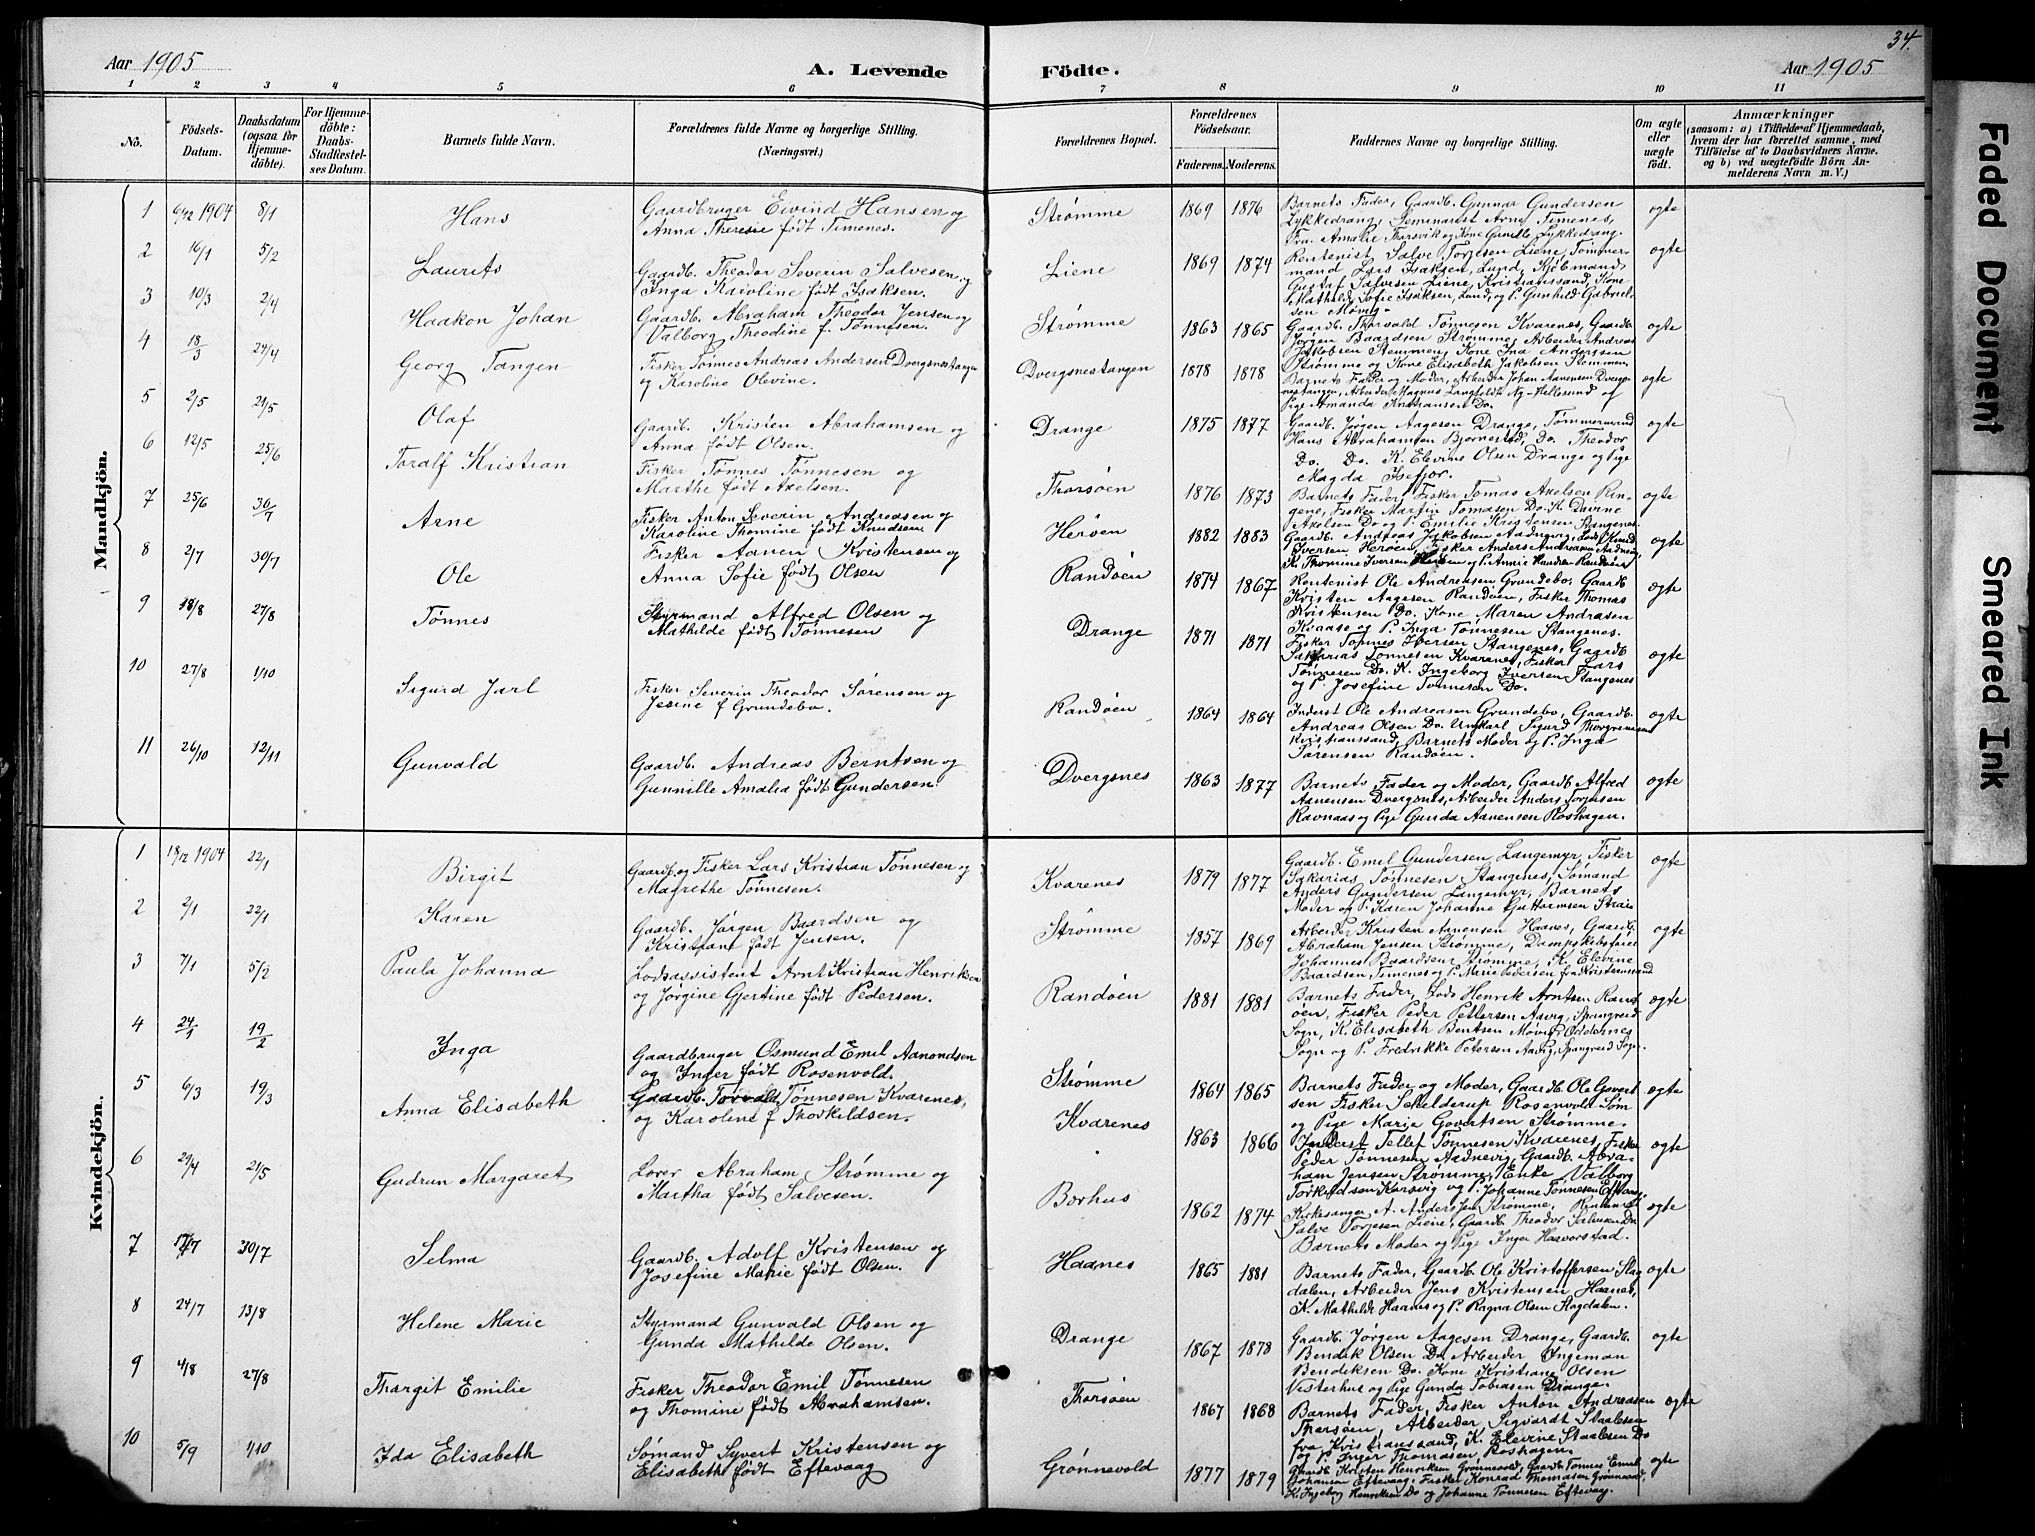 34.
Aar 1905
A. Levende
Födte.
Aar 1905
1 2 3 4 5 6 7 8 9 10 11
No.
Födsels-
Datum.
Daabsdatum
(ogsaa for
Hjemme-
döbte).
For Hjemme-
döbte:
Daabs-
Stadfæstel-
ses Datum.
Barnets fulde Navn.
Forældrenes fulde Navne og borgerlige Stilling.
(Næringsvei.)
Forældrenes Bopæl.
Forældrenes
Födselsaar.
Faderens. Moderens.
Faddernes Navne og borgerlige Stilling.
Om ægte
eller
uægte
födt.
Anmærkninger
(saasom: a) i Tilfælde af Hjemmedaab,
hvem der har forrettet samme, med
Tilföielse af to Daabsvidners Navne,
og b) ved uægtefödte Börn An-
melderens Navn m. V.)
Mandkjön.
1 6/12 1904 8/1 Hans
Gaardbruger Eivind Hansen og
Anna Theresie født Timenes.
Strømme 1869 1876
Barnets Fader, Gaardb. Gunnar Gundersen
Lykkedrang, Seminarist Arne Timenes,
Fru Amalie Thorsvik og Kone Gunille Lykkedrang.
ægte
2 16/1 5/2 Laurits
Gaardb. Theodor Severin Salvesen og
Inga Karoline født Isaksen.
Liene 1869 1874
Rentenist Salve Torjesen Liene, Tømmer-
mand Lars Isaksen, Lund, Kjøbmand
Gustaf Salvesen Liene, Kristianssand, Kone
Mathilde Sofie Isaksen, Lund, og P. Gunhild Gabriel-
sen Møvig.
ægte
3 10/3 2/4 Haakon Johan
Gaardb. Abraham Theodor Jensen og
Valborg Theodine f. Tønnesen.
Strømme 1863 1865
Gaardb. Thorvald Tønnesen Kvarenes, Gaardb.
Jørgen Baardsen Strømme, Arbeider Andreas
Jakobsen Stemmen, Kone Ina Anderssen
Strømme og Kone Elisabeth Jakobsen Stemmen
ægte
4 18/3 24/4 Georg Tangen
Fisker Tønnes Andreas Andersen Dvergsnestangen
og Karoline Olevine.
Dvergsnestangen 1878 1878
Barnets Fader og Moder, Arbeider Johan Aanensen Dvergs-
nestangen, Arbeider Magnus Langfeldt Ny-Hellesund og
Pige Amanda Knutsen Do.
ægte
5 2/5 21/5 Olaf
Gaardb. Kristen Abrahamsen og
Anna født Olsen.
Drange 1875 1877
Gaardb. Jørgen Aagesen Drange, Tømmermand
Hans Abrahamsen Bjørnestad, Do. Theodor
Do. Do. K. Elevine Olsen Drange og Pige
Magda Isefjør.
ægte
6 12/5 25/6 Toralf Kristian
Fisker Tønnes Tønnesen og
Marthe født Axelsen.
Thorsøen 1876 1873
Barnets Fader, Fisker Tomas Axelsen Rin-
gene, Fisker Martin Tomasen Do. K. Davine
Axelsen Do og P. Emilie Kristensen Stangenes.
ægte
7 25/6 30/7 Arne
Fisker Anton Severin Andreasen og
Karoline Thomine født Knudsen
Herøen 1882 1883
Gaardb. Andreas Jakobsen Aadnevig, Lods Knud
Iversen Herøen, Fisker Anders Andreasen Aadnevig,
K. Thomine Iversen
ægte
8 2/7 30/7 Ole
Fisker Aanen Kristensen og
Anna Sofie født Olsen
Randøen 1874 1867
Rentenist Ole Andreasen Grundebo, Gaardb.
Kristen Aagesen Randøen, Fisker Thomas
Kristensen Do. Kone Maren Andreasen
Kvaase og P. Inga Tønnesen Stangenes.
ægte
9 18/8 27/8 Tønnes
Styrmand Alfred Olsen og
Mathilde født Tønnesen
Drange 1871 1871
Fisker Tønnes Iversen Stangenes, Gaardb.
Sakarias Tønnesen Kvarenes, Fisker Lars
Tønnesen Do. K. Ingeborg Iversen Stangenes
og P. Josefine Tønnesen Do.
ægte
10 27/8 1/10 Sigurd Jarl
Fisker Severin Theodor Sørensen og
Jesine f. Grundebo.
Randøen 1864 1864
Inderst Ole Andreasen Grundebo, Gaardb.
Andreas Olsen Do. Ungkarl Sigurd Thorgrimsen
Kristianssand, Barnets Moder og P. Inga
Sørensen Randøen.
ægte
11 26/10 12/11 Gunvald
Gaardb. Andreas Berntsen og
Gunnille Amalia født Gundersen.
Dvergsnes 1863 1877
Barnets Fader og Moder, Gaardb. Alfred
Aanensen Dvergsnes, Arbeider Anders Torjusen
Ravnaas og Pige Gunda Aanensen Roshagen.
ægte
Kvindekjön.
1 18/12 1904 22/1 Birgit
Gaardb. og Fisker Lars Kristian Tønnesen og
Magrethe Tønnesen.
Kvarenes 1879 1877
Gaardb. Emil Gundersen Langemyr, Fisker
Sakarias Tønnesen Stangenes, Sømand
Anders Gundersen Langemyr, Barnets
Moder og P. Karen Johanne Guttormsen Straie
ægte
2 2/1 22/1 Karen
Gaardb. Jørgen Baardsen og
Kristiane født Jensen.
Strømme 1857 1869
Arbeider Kristen Aanensen Haanes, Gaardb.
Abraham Jensen Strømme, Dampskibsfører
Johannes Baardsen Strømme, K. Elevine
Baardsen, Timenes og P. Marie Pedersen fra Kristianssand
ægte
3 7/1 5/2 Paula Johanna
Lodsassistent Arnt Kristian Henriksen
og Jørgine Gjertine født Pedersen.
Randøen 1881 1881
Barnets Fader, Lods Henrik Arntsen Rand-
øen, Fisker Peder Pettersen Aavig, Spangereid
Sogn, K. Elisabeth Bentsen Møvig, Oddernes
Sogn og P. Fredrikke Petersen Aavig, Spangereid Sogn.
ægte
4 24/1 19/2 Inga
Gaardbruger Osmund Emil Aanondsen
og Inger født Rosenvold.
Strømme 1864 1865
Barnets Fader og Moder, Gaardb. Ole Govert-
sen Fisker Schelderup Rosenvold Søm
og Pige Marie Govertsen Strømme.
ægte
5 6/3 19/3 Anna Elisabeth
Gaardb. Torvald Tønnesen Kvarenes,
og Karoline f. Thorkildsen.
Kvarenes 1863 1866
Inderst Tellef Tønnesen Kvarenes, Fisker
Peder Tønnesen Aadnevig, Gaardb. Abra-
ham Jensen Strømme, Enke Valborg
Torkildsen Korsvig og P. Johanne Tønnesen Eftevaag.
ægte
6 29/4 21/5 Gudrun Margaret
Lærer Abraham Strømme og
Martha født Salvesen.
Børhus 1862 1874
Kirkesanger A. Andersen Strømme, Rentenist
Salve Torjesen Liene, Gaardb. Theodor Salvesen Do
Barnets Moder og Pige Inger Haavorstad.
ægte
7 17/7 30/7 Selma
Gaardb. Adolf Kristensen og
Josefine Marie født Olsen.
Haanes 1865 1881
Barnets Fader, Gaardb. Ole Kristoffersen Slag-
dalen, Arbeider Jens Kristensen Haanes,
K. Mathilde Haanes og P. Ragna Olsen Slagdalen.
ægte
8 24/7 13/8 Helene Marie
Styrmand Gunvald Olsen og
Gunda Mathilde Olsen.
Drange 1867 1878
Gaardb. Jørgen Aagesen Drange, Gaardb.
Bendik Olsen Do. Arbeider Ingeman
Bendiksen Do. Kone Kristiane Olsen
Vesterhus og Pige Gunda Tobiasen Drange.
ægte
9 4/8 27/8 Thargit Emilie
Fisker Theodor Emil Tønnesen
og Thomine født Abrahamsen.
Thorsøen 1867 1868
Barnets Fader, Fisker Anton Andreasen
Thorsøen, Arbeider Sigvardt Staalesen
fra Kristianssand, K. Elevine Staalesen Do
og P. Inger Thomassen, Roshagen.
ægte
10 5/9 1/10 Ida Elisabeth
Sømand Syvert Kristensen og
Elisabeth født Eftevaag
Grønnevold 1877 1879
Gaardb. Kristen Henriksen Grønnevold, Gaardb. Tønnes Emil
Johansen Eftevaag, Fisker Konrad Thomasen Grønnevold,
K. Ingeborg Henriksen Do og Johanne Tønnesen Eftevaag.
ægte
Faded Document
Smeared Ink